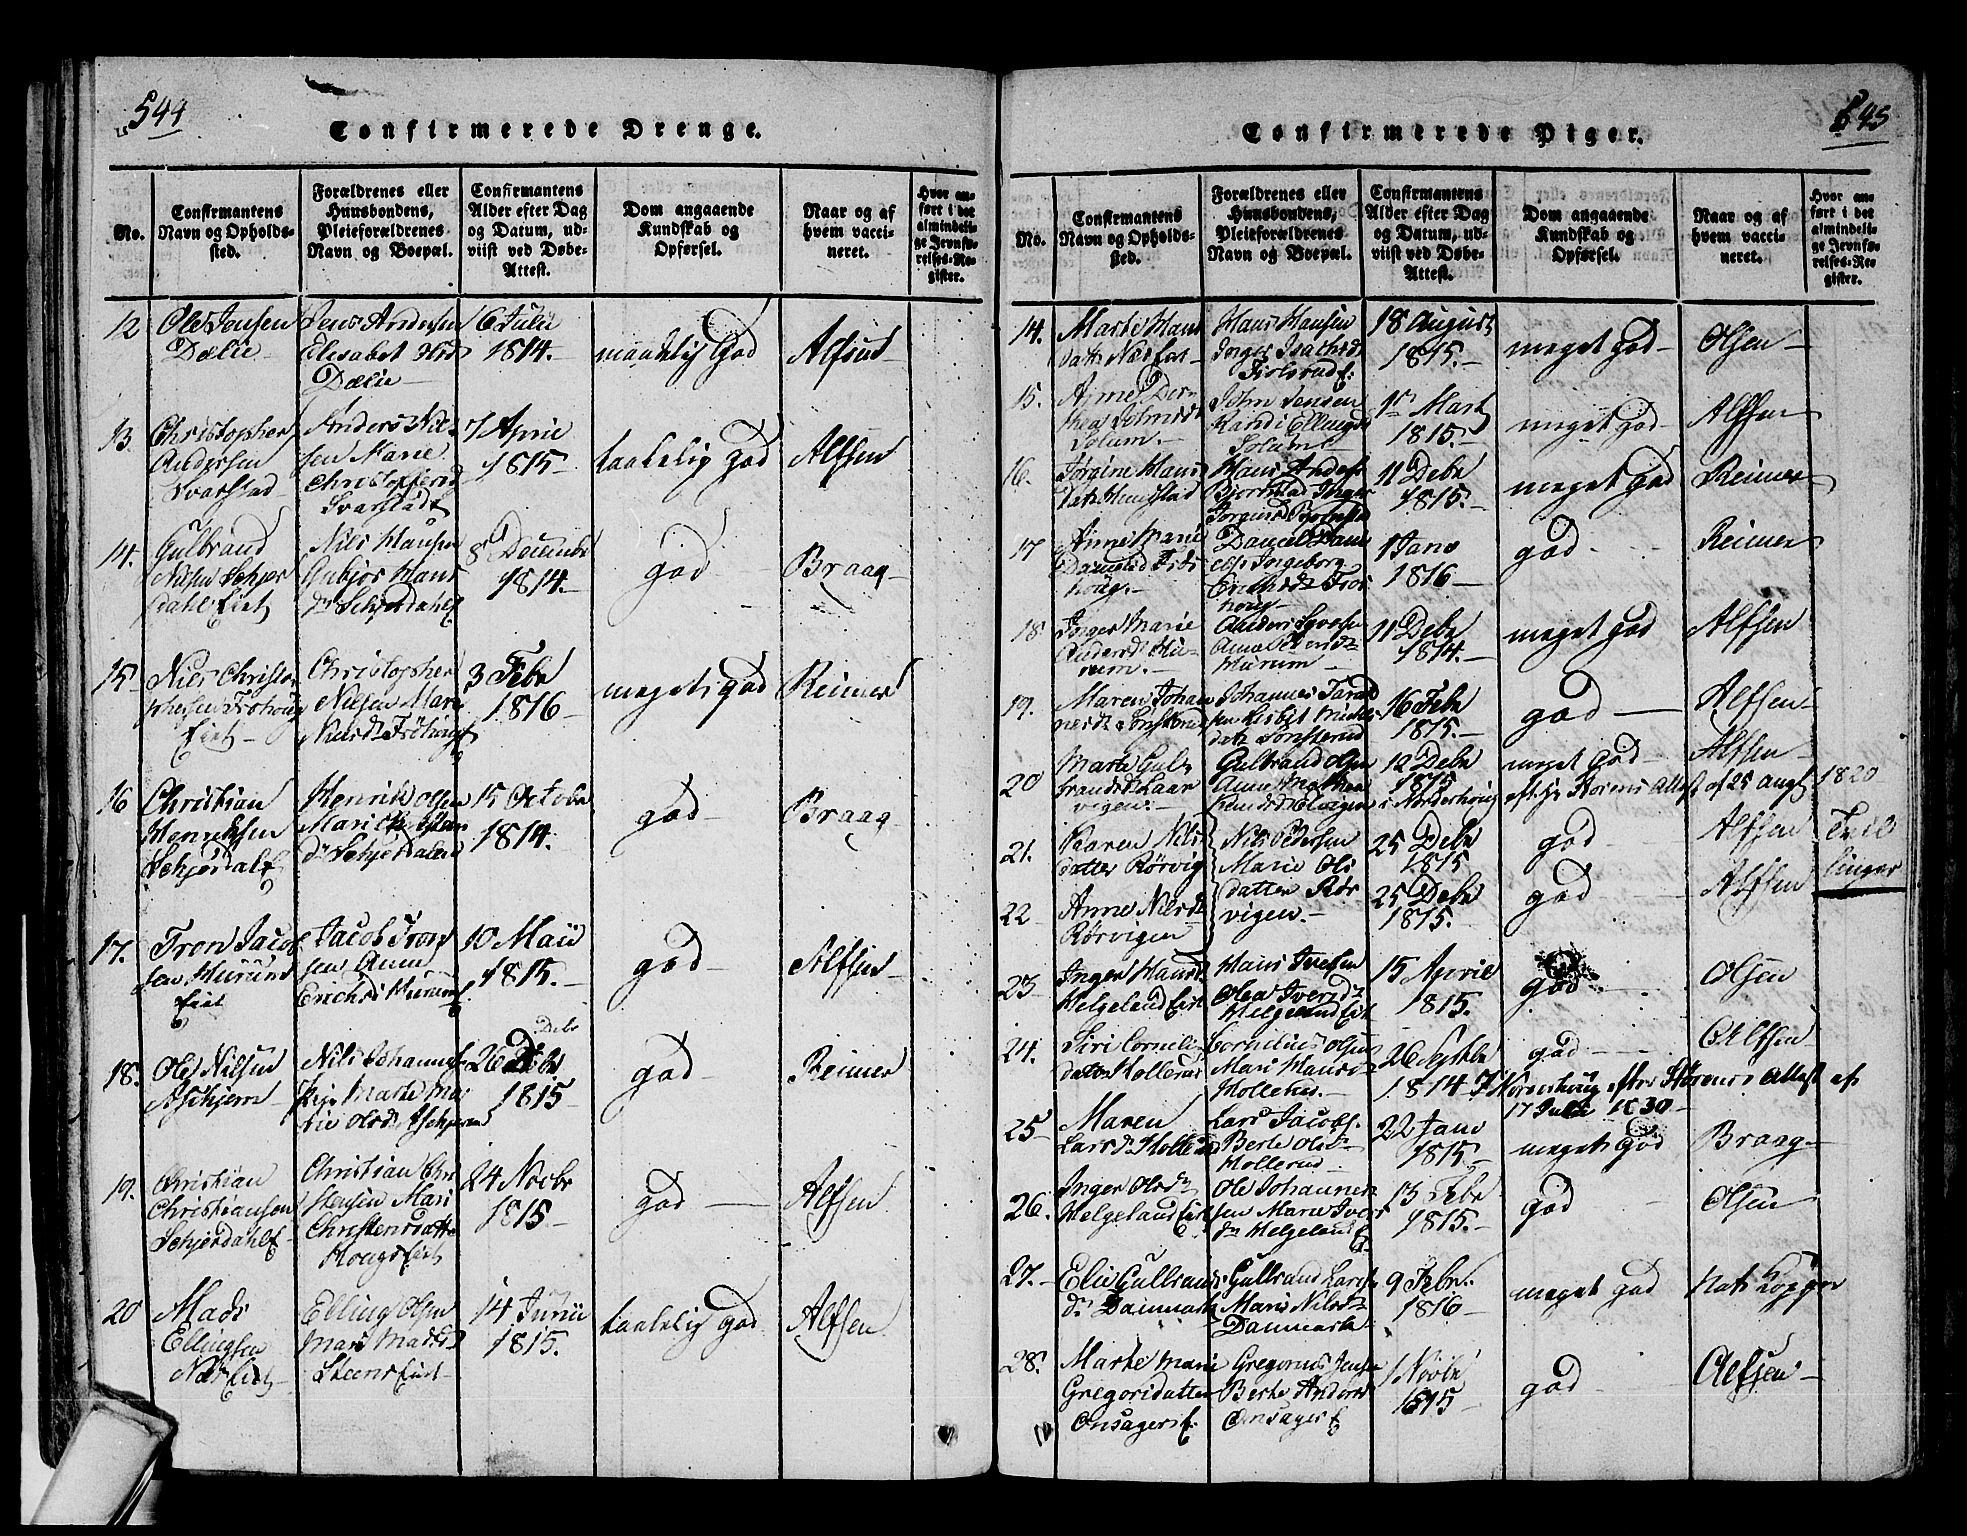 544
Confirmerede Drenge.
No.
Confirmantens
Navn og Opholds-
sted.
Forældrenes eller
Huusbondens,
Pleieforældrenes
Navn og Boepæl.
Confirmantens
Alder efter Dag
og Datum, ud-
viist ved Døbe-
Attest.
Dom angaaende
Kundskab og
Opførsel.
Naar og af
hvem vacci-
neret.
Hvor an-
ført i det
almindeli-
ge Jevnfø-
relses-Re-
gister.
12
Ole Jensen
Dælie
Jens Andersen
Elisabet
Dælie
6 Julii
1814.
maadelig God
Alfsen
13.
Christopher
Andersen
Svarstad
Anders Niel-
sen Marie
Christoffersd
Svarstad
7 April
1815
taalelig God
Alfsen
14.
Gulbrand
Nilsen Schjer
dahls Eiet
Nils Hansen
Anbjør Hans
dr Schjerdahl
8 Decembr
1814.
god
Braag
15
Nils Christo
phersen Frøhoug
Eiet
Christopher
Nilsen Mari
3 Febr
1816
meget god
Reimer
16
Christian
Henriksen
Schjerdal
Henrik Olsen
Mari
dr Schjerdalen
15 Octobr
1814.
god
Braag
17.
Tron Jacob
sen Murüd
Eiet
Jacob Tron
sen Anne
Erichsd Murum
10 Maii
1815.
god
Alfsen
18.
Ole Nilsen
Aschjem
Nils Johannes
Marte
Olsd Aschjem
26 Debr
1815
god
Reimer
19.
Christian
Christiansen
Schjerdahl
Christian Chri
stensen Mari
Christensdatter
Hougs Eiet
24 Novbr
1815
god
Alfsen
20
Mads
Ellingsen
Næs Eiet
Elling Olsen
Mari Madsd
Steens Eiet
14 Junii
1815.
taalelig god
Alfsen
545
Confirmerede Piger.
No.
Confirmantens
Navn og Opholds-
sted.
Forældrenes eller
Huusbondens,
Pleieforældrenes
Navn og Boepæl.
Confirmantens
Alder efter Dag
og Datum, ud-
viist ved Døbe-
Attest.
Dom angaaende
Kundskab og
Opførsel.
Naar og af
hvem vacci-
neret.
Hvor an-
ført i det
almindeli-
ge Jevnfø-
relses-Re-
gister.
14.
Marte Hans
datter
Hans Hansen
Inger Isachsd
18 August
1815.
meget god
Olsen
15.
Anne Dor
thea Johnsd
Solum.
John Jensen
Randi Ellingsd
Solum
1 Marts
1815.
meget god
Alfsen
16.
Jørgine Hans
datter
Hans Anders
Bjørnstad Inger
Jørgensd Bjørnstad
11 Debr
1815.
meget god
Reimer
17
Anne Marie
Danielsd Frøs
houg.
Daniel Dani
elss Ingeborg
Erichsdr Frøs
houg
1 Janv
1816
god
Reimer
18
Inger Marie
Andersd Mu-
rum.
Anders
Anne Pedersdr
Murum
11 Debr
1814.
meget god
Alfsen
19.
Maren Johan
nesdr
Johannes
sen Lisbet
datr
16 Febr
1815.
god
Alfsen
20
Marte Gul
brandsd Laar
vigen
Gulbrand Olsen
Anne
12 Debr
1815
meget God
Alfsen
i Norderhoug eft. Hr Størens Attest af 25 Augt 1820
21.
Karen Nils
datter Rørvig
Nils Pedersen
Marie Ols
datter Rør
vigen.
25 Debr
1815
god
Alfsen
Tvil
linger
22
Anne Nilsdr
Rørvigen
25 Debr
1815.
god
Alfsen
23
Inger Hansd
Helgeland Eiet
Hans Iversen
Olea Iversdr
Helgeland Eiet
15 April
1815.
god
Olsen
24.
Siri Corneli
datr Hollerud
Cornelius Olsen
Mari Hansd
Hollerud.
26 Septbr
1814
god
Alfsen
I Norderhoug efter Hr Størens Attest af
17 Julii 1830
25
Maren
Larsdr Hollerud
Lars Jacobs.
Berte Olsdr
Hollerud
22 Janv
1815.
meget god
Braag
26.
Inger Olsdr
Helgeland Eiet
Ole Johannes
sen Marie Ivers
dr Helgeland
13 Febr
1815.
god
Olsen
27.
Elie Gulbrands
dr Danmark
Gulbrand Lars
Maris Nilsdr
Danmark
9 Febr.
1816
meget god
28.
Marte Marie
Gregorisdatter
Onsager E.
Gregorius Jensen
Berte Andersd
Onsager E
1 Novbr
1815
god
Alfsen